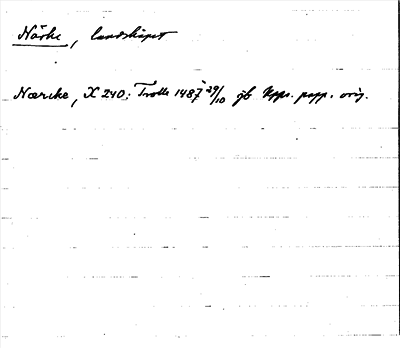 Närke, landskapet
Nærike, X 240: Trolle 1487 29/10 jb Upps. papp. orig.